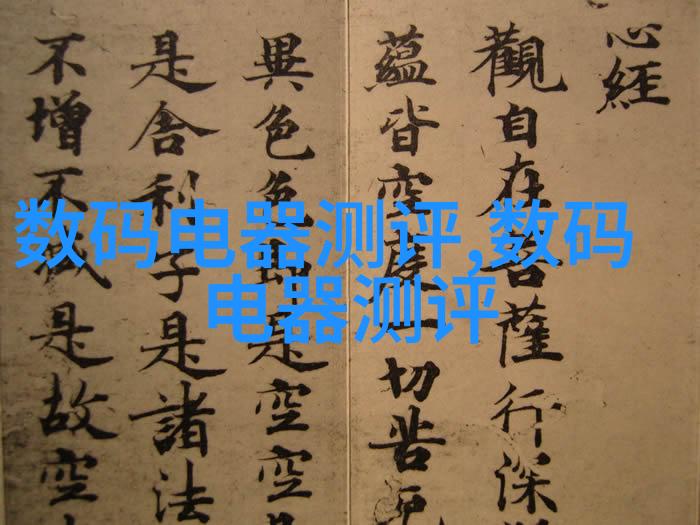 心經
觀自在菩薩行深
蘊皆空度一切苦厄
異色色即是空空
是舍利子是諸法
不增不減是故空
数码电器测评,数码
电器测评